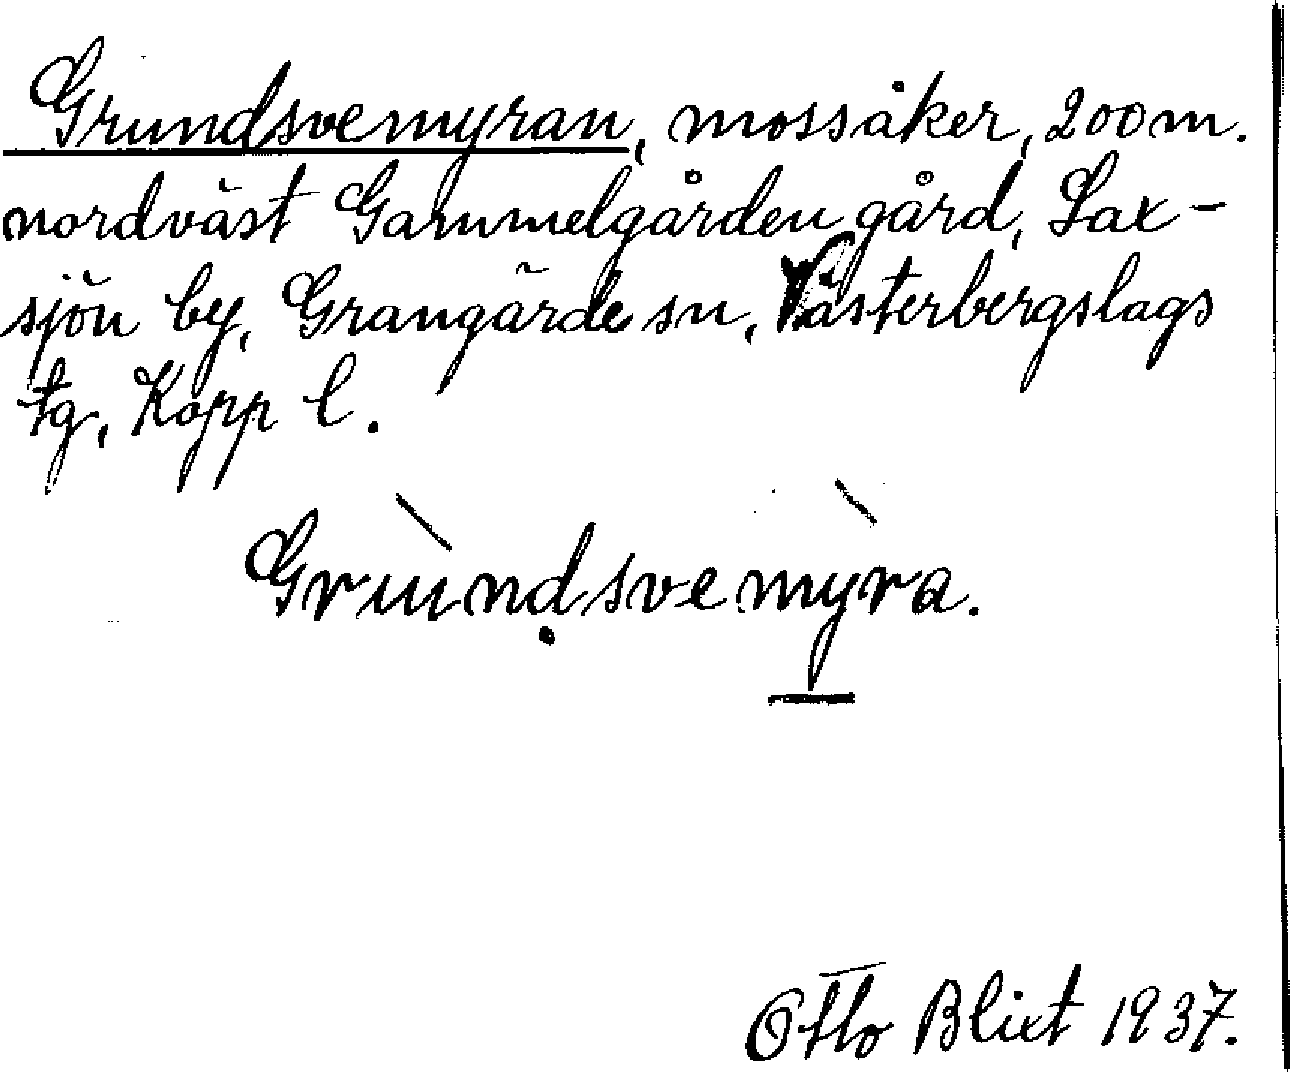 Grundsvemyran, mossåker, 200 m.
nordväst Gammelgården gård, Lax-
sjön by, Grangärde sn, Västerbergslags
tg, Kopp l.
Grùnḍsvemỳra.
Otto Blixt 1937.